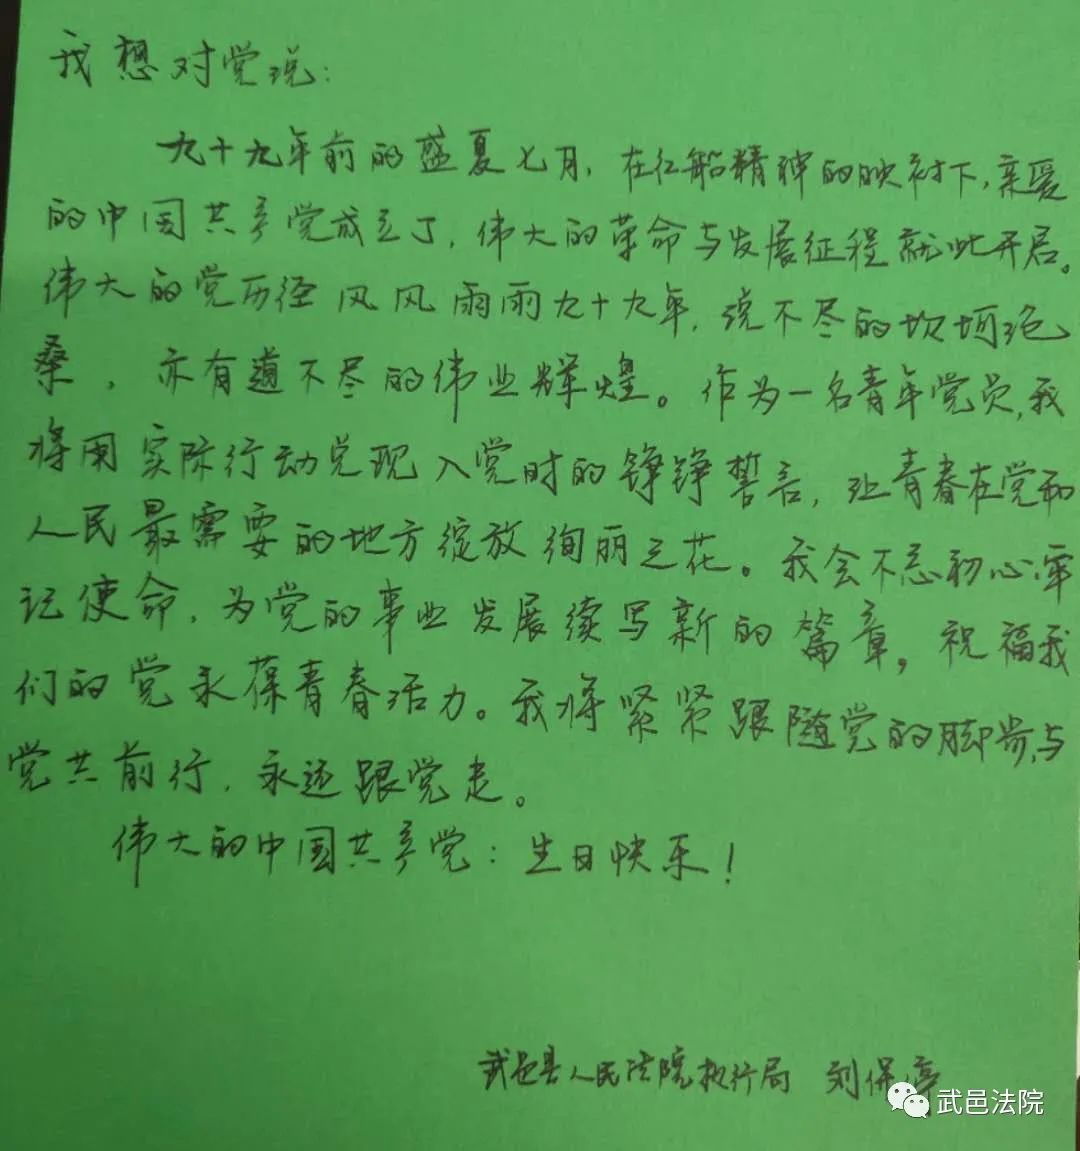 我想对党说:
九十九年前的盛夏七月,在红船精神的映衬下,亲爱
的中国共产党成立了,伟大的革命与发展征程就此开启。
伟大的党历经风风雨雨九十九年,说不尽的坎坷沧
桑,亦有道不尽的伟业辉煌。作为一名青年党员,我
将用实际行动兑现入党时的铮铮誓言,让青春在党和
人民最需要的地方绽放绚丽之花。我会不忘初心牢
记使命,为党的事业发展续写新的篇章,祝福我
们的党永葆青春活力。我将紧紧跟随党的脚步,与
党共前行,永远跟党走。
伟大的中国共产党:生日快乐!
武邑县人民法院执行局 刘保
武邑法院